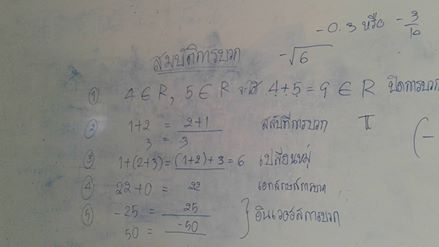 -0.3 หรือ -3/10
-√6
สมบัติการบวก
① 4 ∈ R, 5 ∈ R 4+5 = 9 ∈ R ปิดการบวก
② 1+2 = 2+1 สลับที่การบวก II
3 = 3
③ 1+(2+3) = (1+2)+3 = 6 เปลี่ยนหมู่
④ 22+0 = 22 เอกลักษณ์การบวก
⑤ -25 = 25 } อินเวอร์สการบวก
50 = -50
(-